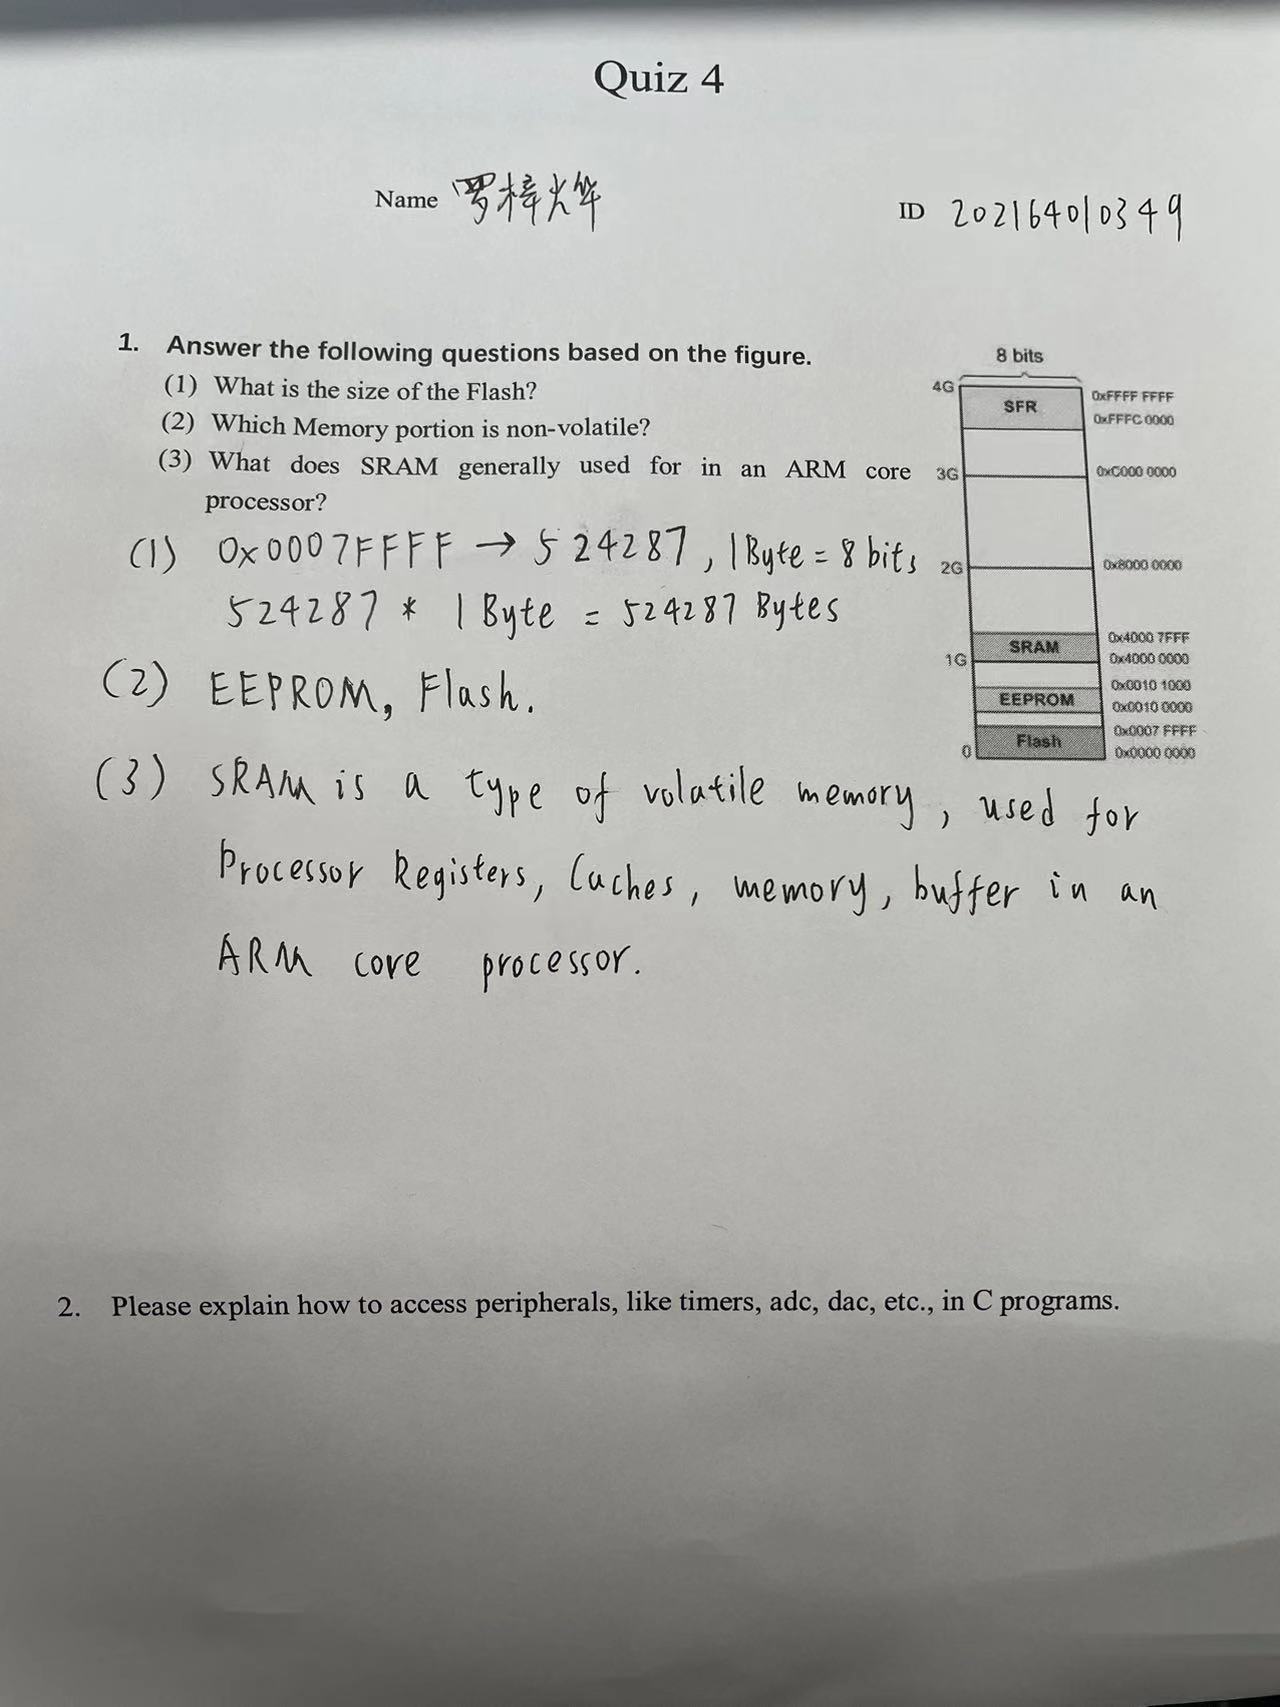 Quiz 4
Name 罗梓烨
ID 202164010349
1. Answer the following questions based on the figure.
(1) What is the size of the Flash?
(2) Which Memory portion is non-volatile?
(3) What does SRAM generally used for in an ARM core
processor?
8 bits
4G
SFR
0xFFFF FFFF
0xFFFC 0000
3G
0xC000 0000
2G
0x8000 0000
SRAM
0x4000 7FFF
1G
0x4000 0000
EEPROM
0x0010 1000
0x0010 0000
Flash
0x0007 FFFF
0
0x0000 0000
(1) 0x0007FFFF → 524287, 1 Byte = 8 bits
524287 * 1 Byte = 524287 Bytes
(2) EEPROM, Flash.
(3) SRAM is a type of volatile memory, used for
Processor Registers, Caches, memory, buffer in an
ARM core processor.
2. Please explain how to access peripherals, like timers, adc, dac, etc., in C programs.